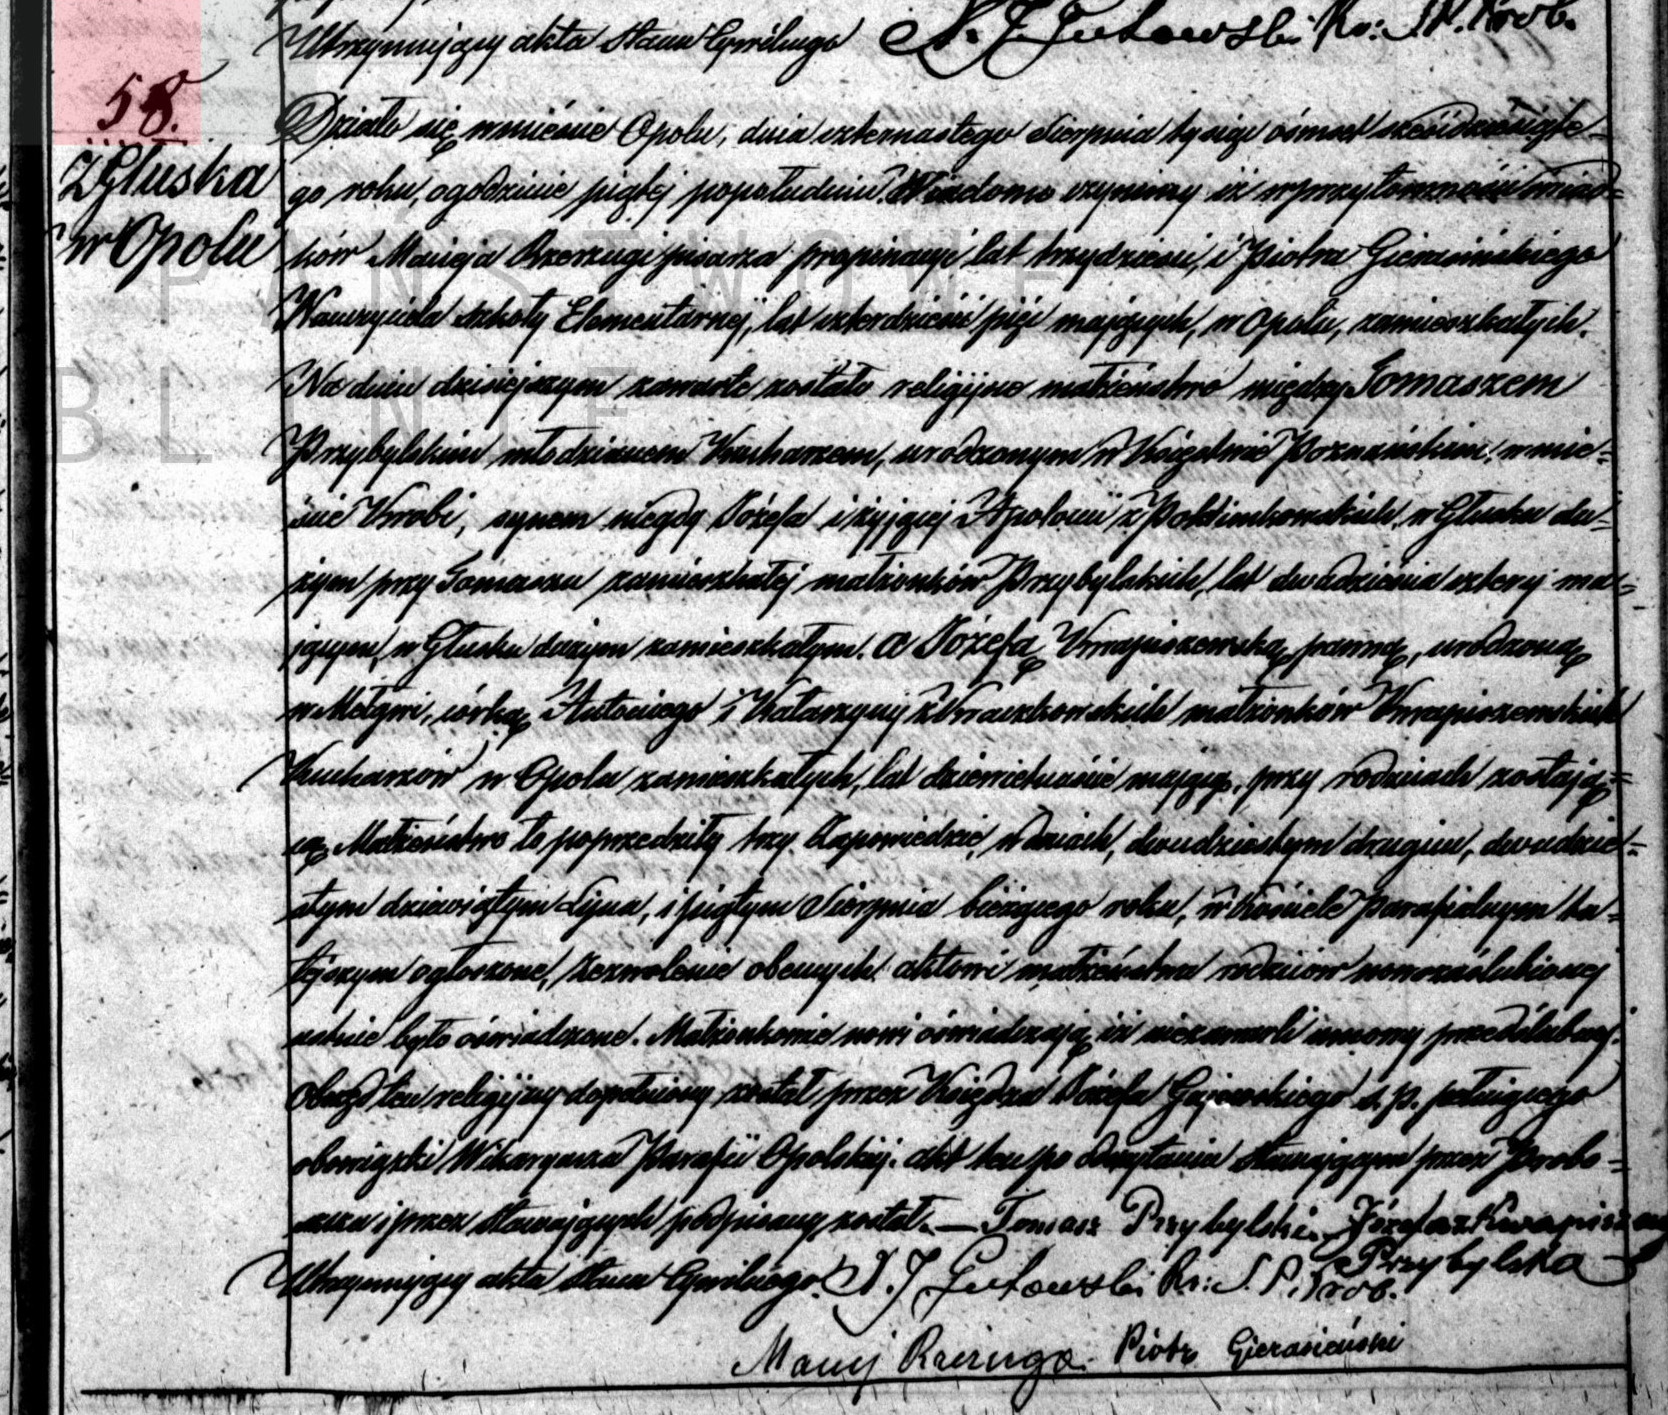 Utrzymujący akta Stanu Cywilnego N. J. Gutowski Kr: S. P. Prob.
58.
Z Głuska
w Opolu
Działo się w mieście Opolu, dnia czternastego Sierpnia tysiąc ośmset sześćdziesiąte-
go roku, o godzinie piątej popołudniu. Wiadomo czyniemy iż w przytomności świad-
ków Macieja Rzerzugi pisarza propinacyi, lat trzydzieści, i Piotra Gierasińskiego
Nauczyciela szkoły Elementarnej, lat czterdzieści pięć mających, w Opolu, zamieszkałych.
Na dniu dzisiejszym zawarte zostało religijne małżeństwo między Tomaszem
Przybylskim młodzianem Kucharzem, urodzonym w Księstwie Poznańskim, w mie-
ście Krobi, synem niegdy Józefa i żyjącej Apolonii z w Głusku du-
żym przy Tomaszu zamieszkałej małżonków Przybylskich, lat dwadzieścia cztery ma-
jącym, w Głusku dużym zamieszkałym. a Józefą Kwapiszewską panną, urodzoną
w Mełgwi, córką Antoniego i Katarzyny z małżonków Kwapiszewskich
Kucharzów w Opolu zamieszkałych, lat dziewietnaście mającą, przy rodzicach zostają-
cą. Małżeństwo to poprzedziły trzy Zapowiedzie, w dniach, dwudziestym drugim, dwudzie-
stym dziewiątym Lipca, i piątym Sierpnia bieżącego roku, w kościele Parafialnym tu-
tejszym ogłoszone, Zezwolenie obecnych aktowi małżeństwa rodziców nowozaślubionej
ustnie było oświadczone. Małżonkowie nowi oświadczają iż niezawarli umowy przedślubnej.
obrząd ten religijny dopełniony został przez Księdza Józefa Gajewskiego s. p. pełniącego
obowiązki Wikaryusza Parafii Opolskiej. akt ten po odczytaniu stawającym przez Probo-
szcza i przez stawających podpisany został. — Tomasz Przybylski. Józefa z Kwapiszewskich
Przybylska
Utrzymujący akta Stanu Cywilnego. N. J. Gutowski Kr: S. P. Prob.
Maciej Rzerzuga. Piotr Gierasieński